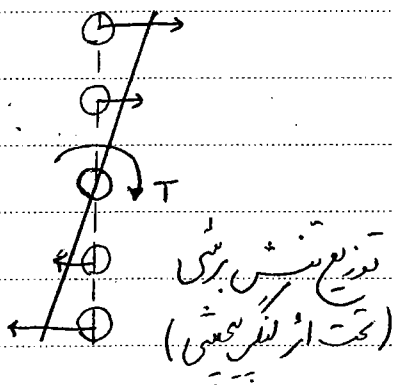 T
توزیع تنش برشی
(تحت اثر لنگر پیچشی)